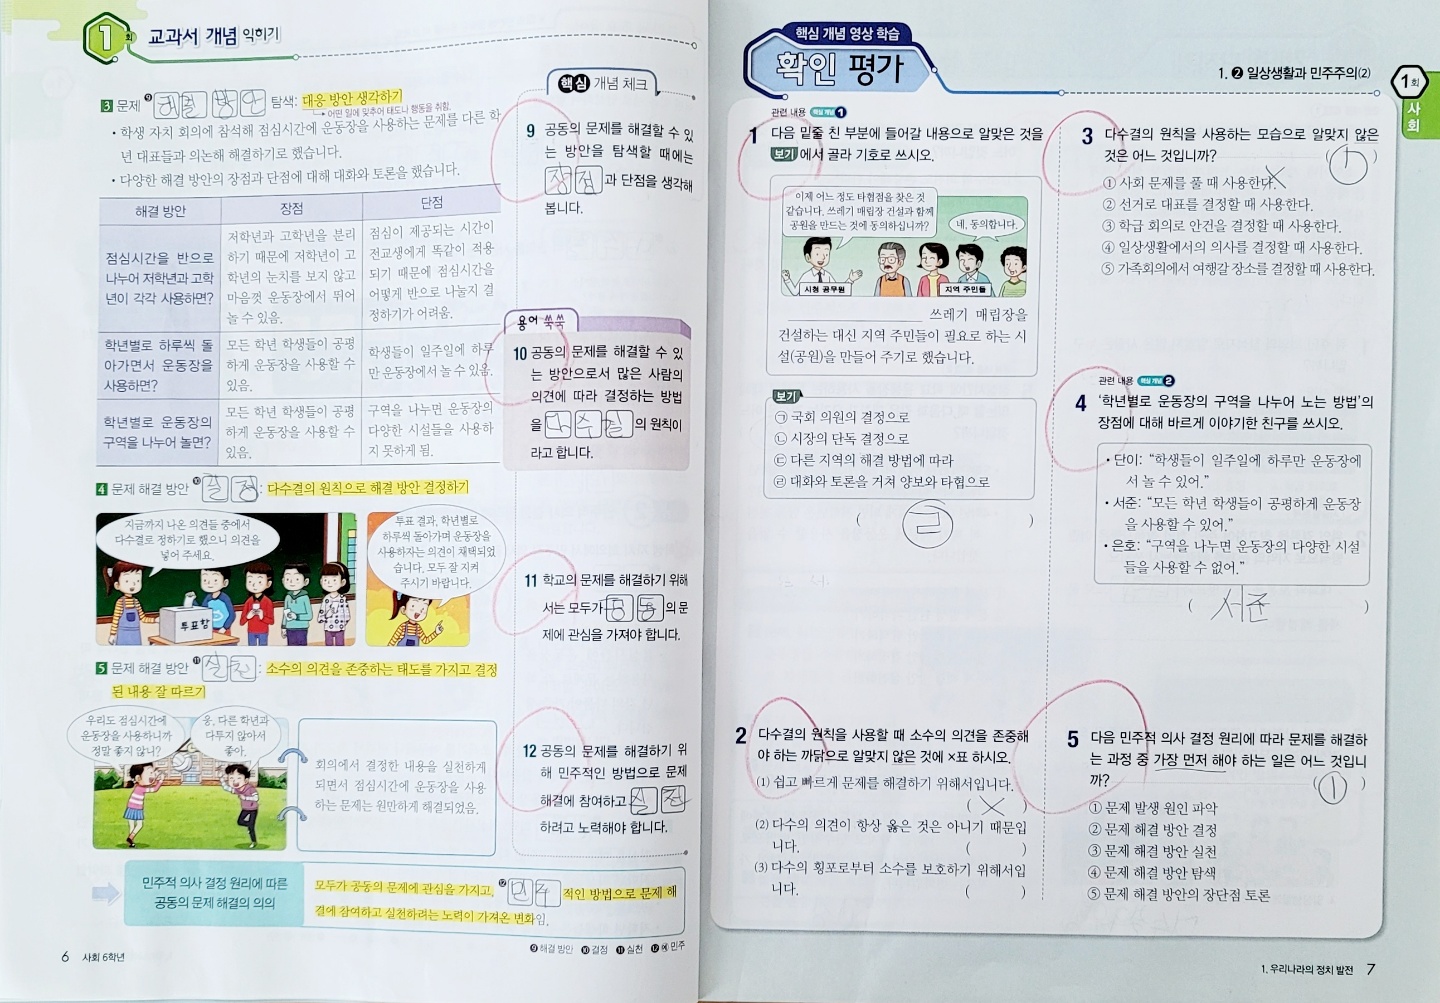 1회 교과서 개념 익히기
3 문제 ❾해결 방안 탐색: 대응 방안 생각하기
→ 어떤 일에 맞추어 태도나 행동을 취함.
• 학생 자치 회의에 참석해 점심시간에 운동장을 사용하는 문제를 다른 학
년 대표들과 의논해 해결하기로 했습니다.
• 다양한 해결 방안의 장점과 단점에 대해 대화와 토론을 했습니다.
해결 방안 장점 단점
점심시간을 반으로
나누어 저학년과 고학
년이 각각 사용하면?
저학년과 고학년을 분리
하기 때문에 저학년이 고
학년의 눈치를 보지 않고
마음껏 운동장에서 뛰어
놀 수 있음.
점심이 제공되는 시간이
전교생에게 똑같이 적용
되기 때문에 점심시간을
어떻게 반으로 나눌지 결
정하기가 어려움.
학년별로 하루씩 돌
아가면서 운동장을
사용하면?
모든 학년 학생들이 공평
하게 운동장을 사용할 수
있음.
학생들이 일주일에 하루
만 운동장에서 놀 수 있음.
학년별로 운동장의
구역을 나누어 놀면?
모든 학년 학생들이 공평
하게 운동장을 사용할 수
있음.
구역을 나누면 운동장의
다양한 시설들을 사용하
지 못하게 됨.
4 문제 해결 방안 ❿결정: 다수결의 원칙으로 해결 방안 결정하기
지금까지 나온 의견들 중에서
다수결로 정하기로 했으니 의견을
넣어 주세요.
투표함
투표 결과, 학년별로
하루씩 돌아가며 운동장을
사용하자는 의견이 채택되었
습니다. 모두 잘 지켜
주시기 바랍니다.
5 문제 해결 방안 ⓫실천: 소수의 의견을 존중하는 태도를 가지고 결정
된 내용 잘 따르기
우리도 점심시간에
운동장을 사용하니까
정말 좋지 않니?
응, 다른 학년과
다투지 않아서
좋아.
회의에서 결정한 내용을 실천하게
되면서 점심시간에 운동장을 사용
하는 문제는 원만하게 해결되었음.
민주적 의사 결정 원리에 따른
공동의 문제 해결의 의의
모두가 공동의 문제에 관심을 가지고, ⓬민주적인 방법으로 문제 해
결에 참여하고 실천하려는 노력이 가져온 변화임.
핵심 개념 체크
9 공동의 문제를 해결할 수 있
는 방안을 탐색할 때에는
장점과 단점을 생각해
봅니다.
용어 쏙쏙
10 공동의 문제를 해결할 수 있
는 방안으로서 많은 사람의
의견에 따라 결정하는 방법
을 다수결의 원칙이
라고 합니다.
11 학교의 문제를 해결하기 위해
서는 모두가 공동의 문
제에 관심을 가져야 합니다.
12 공동의 문제를 해결하기 위
해 민주적인 방법으로 문제
해결에 참여하고 실천
하려고 노력해야 합니다.
❾ 해결 방안 ❿ 결정 ⓫ 실천 ⓬ 예 민주
6 사회 6학년
핵심 개념 영상 학습
확인 평가
1. ❷ 일상생활과 민주주의(2)
1회
사회
관련 내용 핵심 개념 1
1 다음 밑줄 친 부분에 들어갈 내용으로 알맞은 것을
보기에서 골라 기호로 쓰시오.
이제 어느 정도 타협점을 찾은 것
같습니다. 쓰레기 매립장 건설과 함께
공원을 만드는 것에 동의하십니까?
네, 동의합니다.
시청 공무원
지역 주민들
쓰레기 매립장을
건설하는 대신 지역 주민들이 필요로 하는 시
설(공원)을 만들어 주기로 했습니다.
보기
㉠ 국회 의원의 결정으로
㉡ 시장의 단독 결정으로
㉢ 다른 지역의 해결 방법에 따라
㉣ 대화와 토론을 거쳐 양보와 타협으로
( ㉣ )
2 다수결의 원칙을 사용할 때 소수의 의견을 존중해
야 하는 까닭으로 알맞지 않은 것에 ×표 하시오.
(1) 쉽고 빠르게 문제를 해결하기 위해서입니다.
( × )
(2) 다수의 의견이 항상 옳은 것은 아니기 때문입
니다. ( )
(3) 다수의 횡포로부터 소수를 보호하기 위해서입
니다. ( )
3 다수결의 원칙을 사용하는 모습으로 알맞지 않은
것은 어느 것입니까? ( ① )
① 사회 문제를 풀 때 사용한다.
② 선거로 대표를 결정할 때 사용한다.
③ 학급 회의로 안건을 결정할 때 사용한다.
④ 일상생활에서의 의사를 결정할 때 사용한다.
⑤ 가족회의에서 여행갈 장소를 결정할 때 사용한다.
관련 내용 핵심 개념 2
4 ‘학년별로 운동장의 구역을 나누어 노는 방법’의
장점에 대해 바르게 이야기한 친구를 쓰시오.
• 단이: “학생들이 일주일에 하루만 운동장에
서 놀 수 있어.”
• 서준: “모든 학년 학생들이 공평하게 운동장
을 사용할 수 있어.”
• 은호: “구역을 나누면 운동장의 다양한 시설
들을 사용할 수 없어.”
( 서준 )
5 다음 민주적 의사 결정 원리에 따라 문제를 해결하
는 과정 중 가장 먼저 해야 하는 일은 어느 것입니
까? ( ① )
① 문제 발생 원인 파악
② 문제 해결 방안 결정
③ 문제 해결 방안 실천
④ 문제 해결 방안 탐색
⑤ 문제 해결 방안의 장단점 토론
1. 우리나라의 정치 발전 7